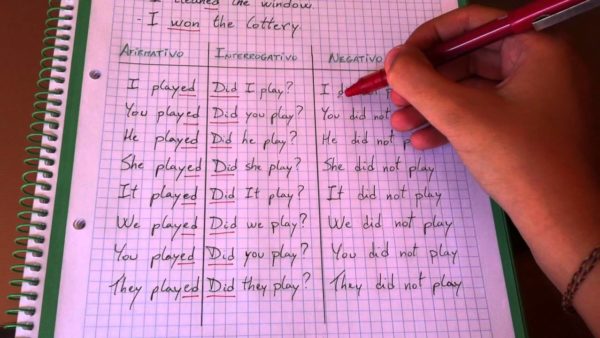 I cleaned the window.
- I won the lottery.
AFIRMATIVO INTERROGATIVO NEGATIVO
I played Did I play? I
You played Did you play? You did not
He played Did he play? He did not
She played Did she play? She did not play
It played Did It play? It did not play
We played Did we play? We did not play
You played Did you play? You did not play
They played Did they play? They did not play